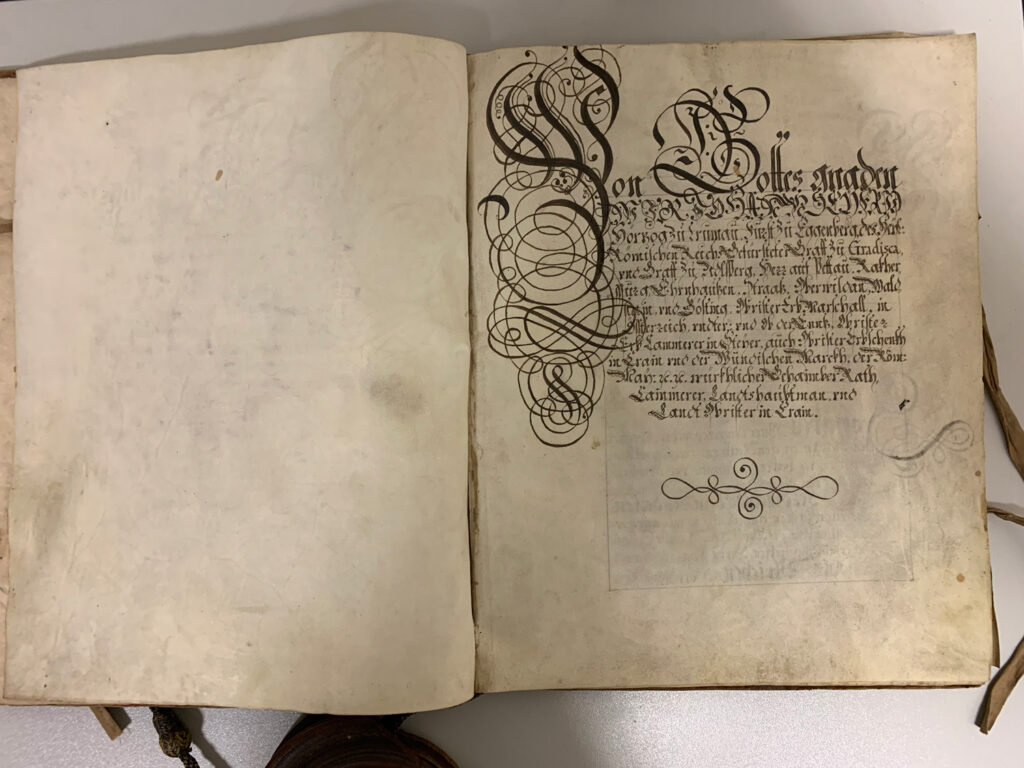 Von Gottes gnaden
WIR IOHAN SEYFRID
Hertzog zu Crumau, Fürst zu Eggenberg, des Heil:
Römischen Reich Gefürsteter Graff zu Gradisca,
vnd Graff zu Adlsperg, Herr auf Pettau, Rather
spurg, Ehrnhausen, Straß, Oberwildan, Wald
stain, vnd Gösting, Obrister Erb Marschall, in
Össterreich, vndter, vnd Ob der Ennß, Obrister
Erb Cammerer in Steyer, auch Obrister Erbschenkh
in Crain vnd der Windischen Marckh, der Röm:
May: ꝛc. ꝛc. würkhlicher Gehaimber Rath,
Cammerer, Landtshaubtman, vnd
Landt Obrister in Crain.